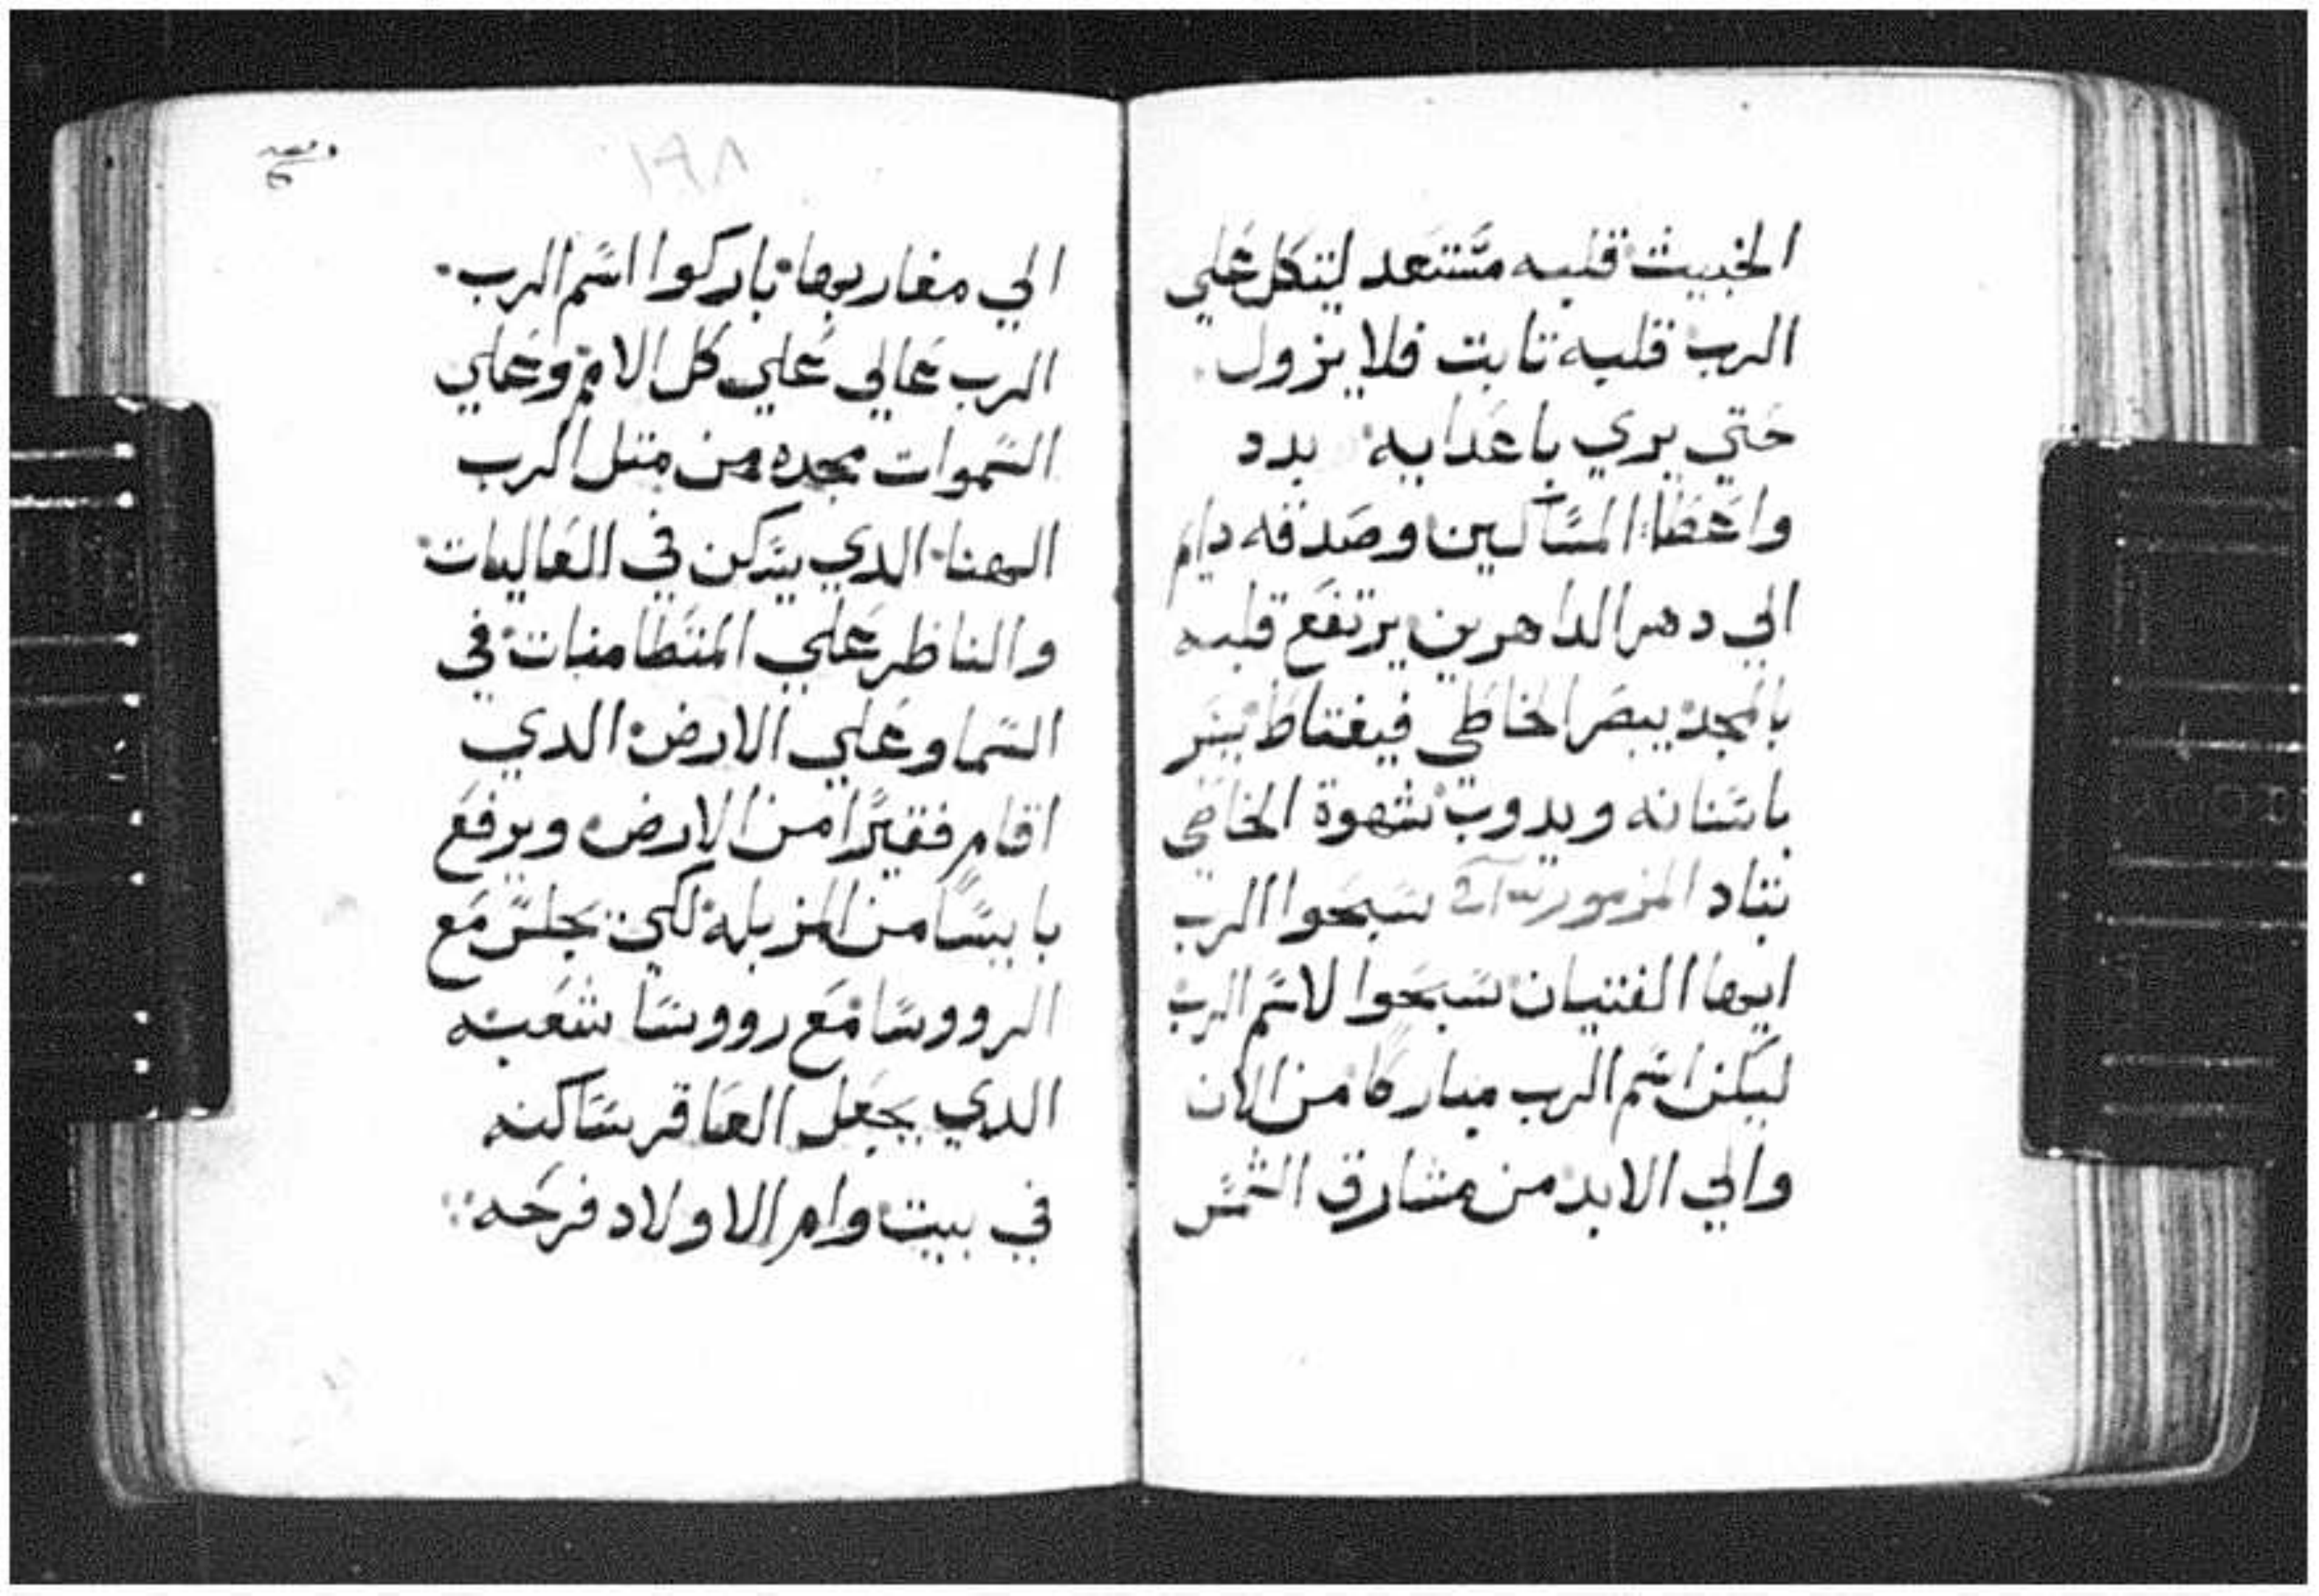 الخبيث قلبه مستعد ليتكل علي
الرب قلبه تابت فلا يزول
حتي يري باعدايه بدد
واعطا المساكين وصدقه دايم
الي دهر الداهرين يرتفع قلبه
بالمجد يبصر الخاطي فيغتاظ يصر
باسنانه ويدوب شهوة الخاطي
تباد المزمور سبحوا الرب
ايها الفتيان سبحوا لاسم الرب
ليكن اسم الرب مباركا من الان
والي الابد من مشارق الشمس
١٩٨
الي مغاربها باركوا اسم الرب
الرب عالي علي كل الامم وعلي
السموات مجده من متل الرب
الهنا الدي يسكن في العاليات
والناظر علي المتطامنات في
السما وعلي الارض الدي
اقام فقيرا من الارض ويرفع
بايسا من المزبله لكي يجلس مع
الرووسا مع رووسا شعبه
الدي يجعل العاقر ساكنه
في بيت وام الاولاد فرحه